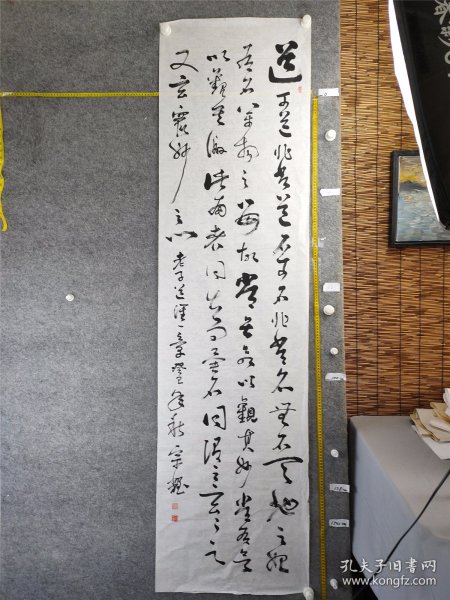 道可道非常道名可名非常名無名天地之始
有名萬物之母故常無欲以觀其妙常有欲
以觀其徼此兩者同出而異名同謂之玄玄之
又玄眾妙之門 老子道經一章
孔夫子旧书网
www.kongfz.com